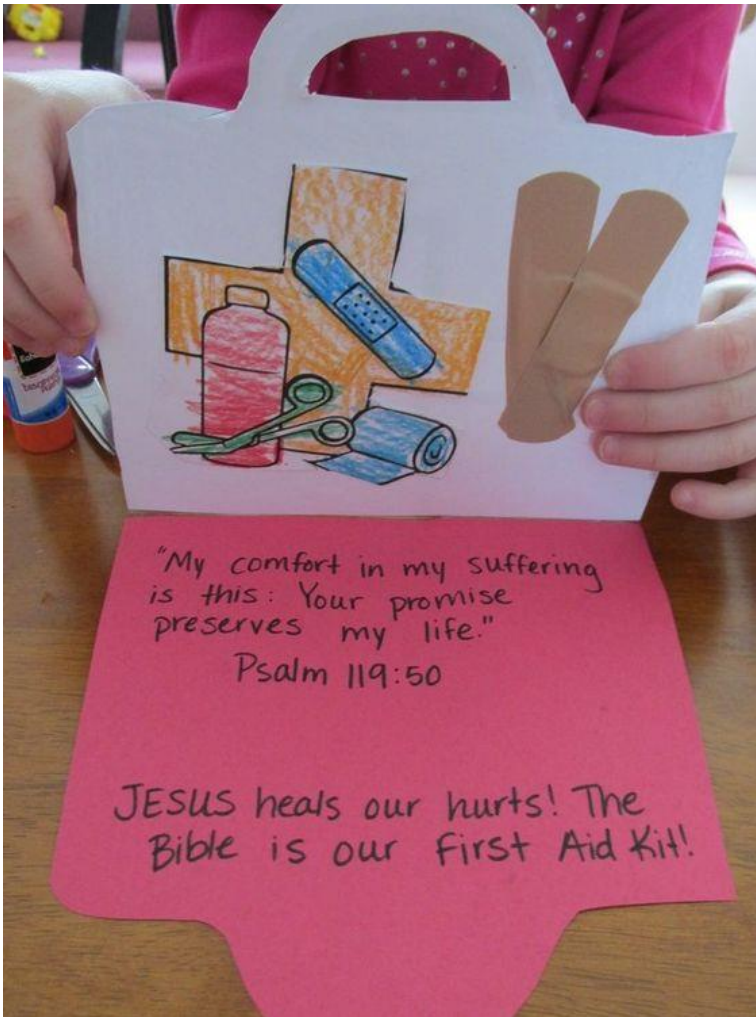 "My comfort in my suffering
is this: Your promise
preserves my life."
Psalm 119:50
JESUS heals our hurts! The
Bible is our First Aid Kit!